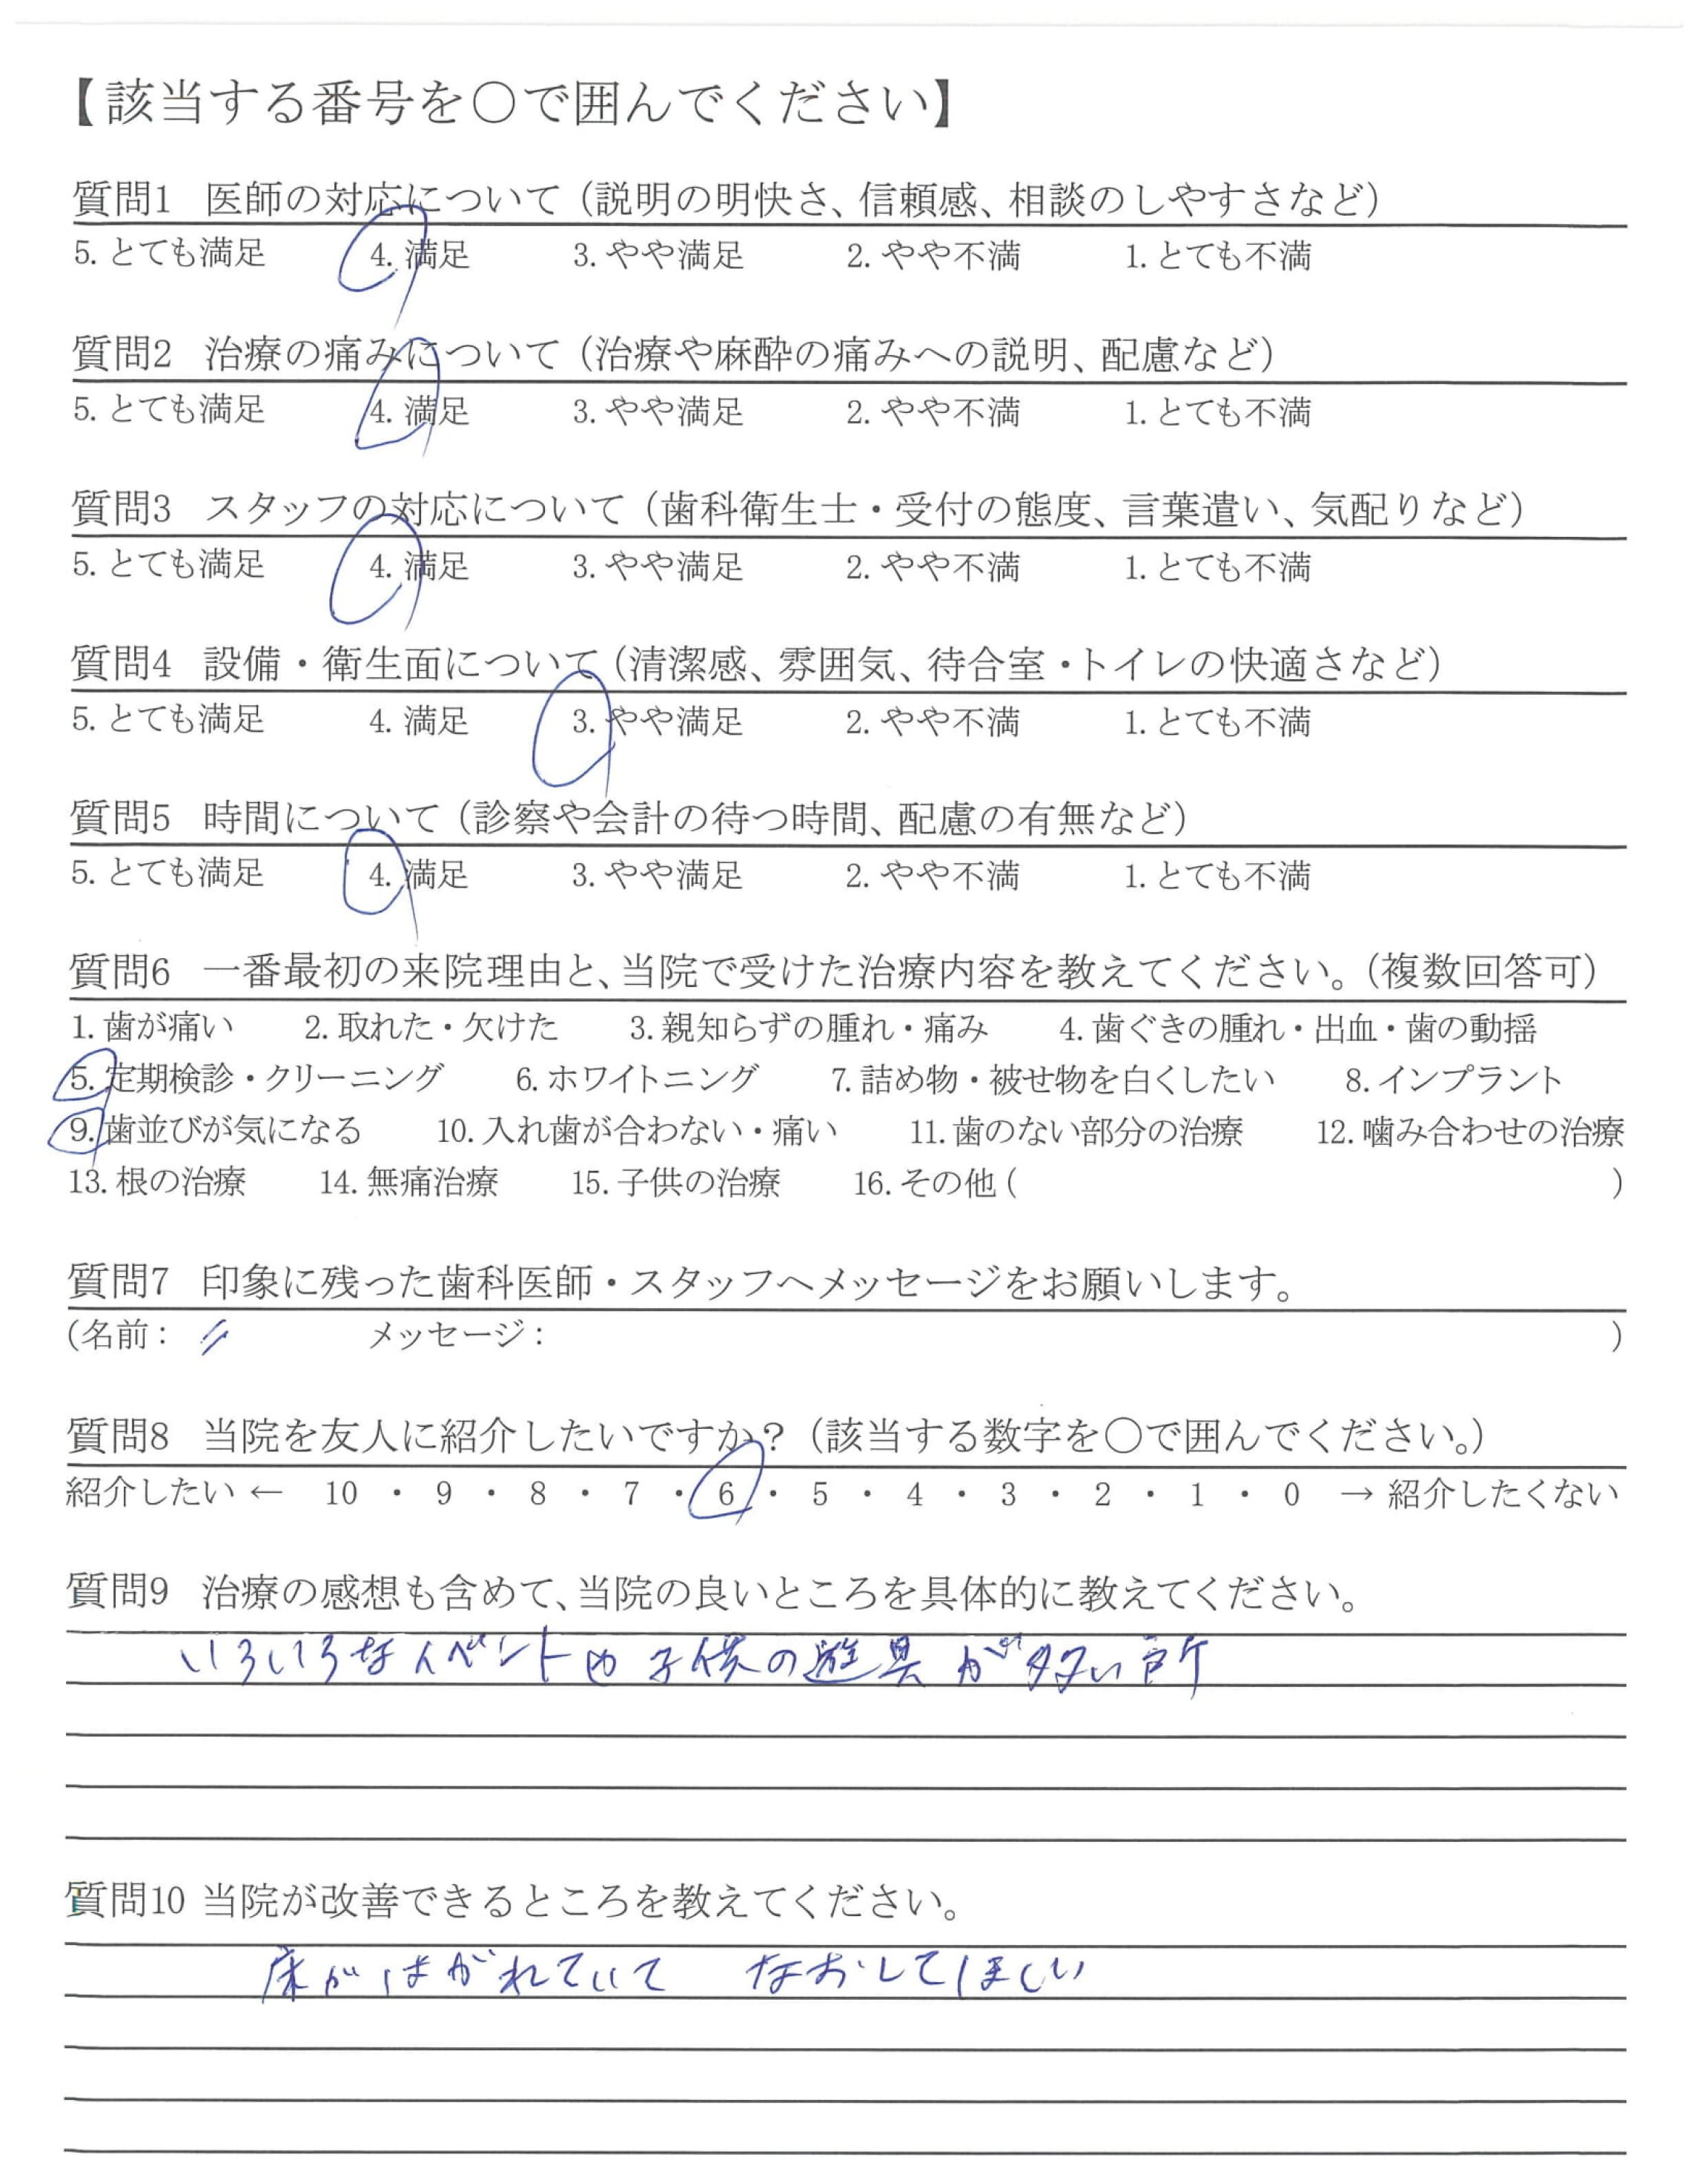 【該当する番号を○で囲んでください】
質問1 医師の対応について（説明の明快さ、信頼感、相談のしやすさなど）
5. とても満足 4. 満足 3. やや満足 2. やや不満 1. とても不満
質問2 治療の痛みについて（治療や麻酔の痛みへの説明、配慮など）
5. とても満足 4. 満足 3. やや満足 2. やや不満 1. とても不満
質問3 スタッフの対応について（歯科衛生士・受付の態度、言葉遣い、気配りなど）
5. とても満足 4. 満足 3. やや満足 2. やや不満 1. とても不満
質問4 設備・衛生面について（清潔感、雰囲気、待合室・トイレの快適さなど）
5. とても満足 4. 満足 3. やや満足 2. やや不満 1. とても不満
質問5 時間について（診察や会計の待つ時間、配慮の有無など）
5. とても満足 4. 満足 3. やや満足 2. やや不満 1. とても不満
質問6 一番最初の来院理由と、当院で受けた治療内容を教えてください。（複数回答可）
1. 歯が痛い 2. 取れた・欠けた 3. 親知らずの腫れ・痛み 4. 歯ぐきの腫れ・出血・歯の動揺
5. 定期検診・クリーニング 6. ホワイトニング 7. 詰め物・被せ物を白くしたい 8. インプラント
9. 歯並びが気になる 10. 入れ歯が合わない・痛い 11. 歯のない部分の治療 12. 噛み合わせの治療
13. 根の治療 14. 無痛治療 15. 子供の治療 16. その他（ ）
質問7 印象に残った歯科医師・スタッフへメッセージをお願いします。
（名前： 〃 メッセージ： ）
質問8 当院を友人に紹介したいですか？（該当する数字を○で囲んでください。）
紹介したい ← 10 ・ 9 ・ 8 ・ 7 ・ 6 ・ 5 ・ 4 ・ 3 ・ 2 ・ 1 ・ 0 → 紹介したくない
質問9 治療の感想も含めて、当院の良いところを具体的に教えてください。
いろいろなイベントや子供の遊具が多い所
質問10 当院が改善できるところを教えてください。
床がはがれていて なおしてほしい